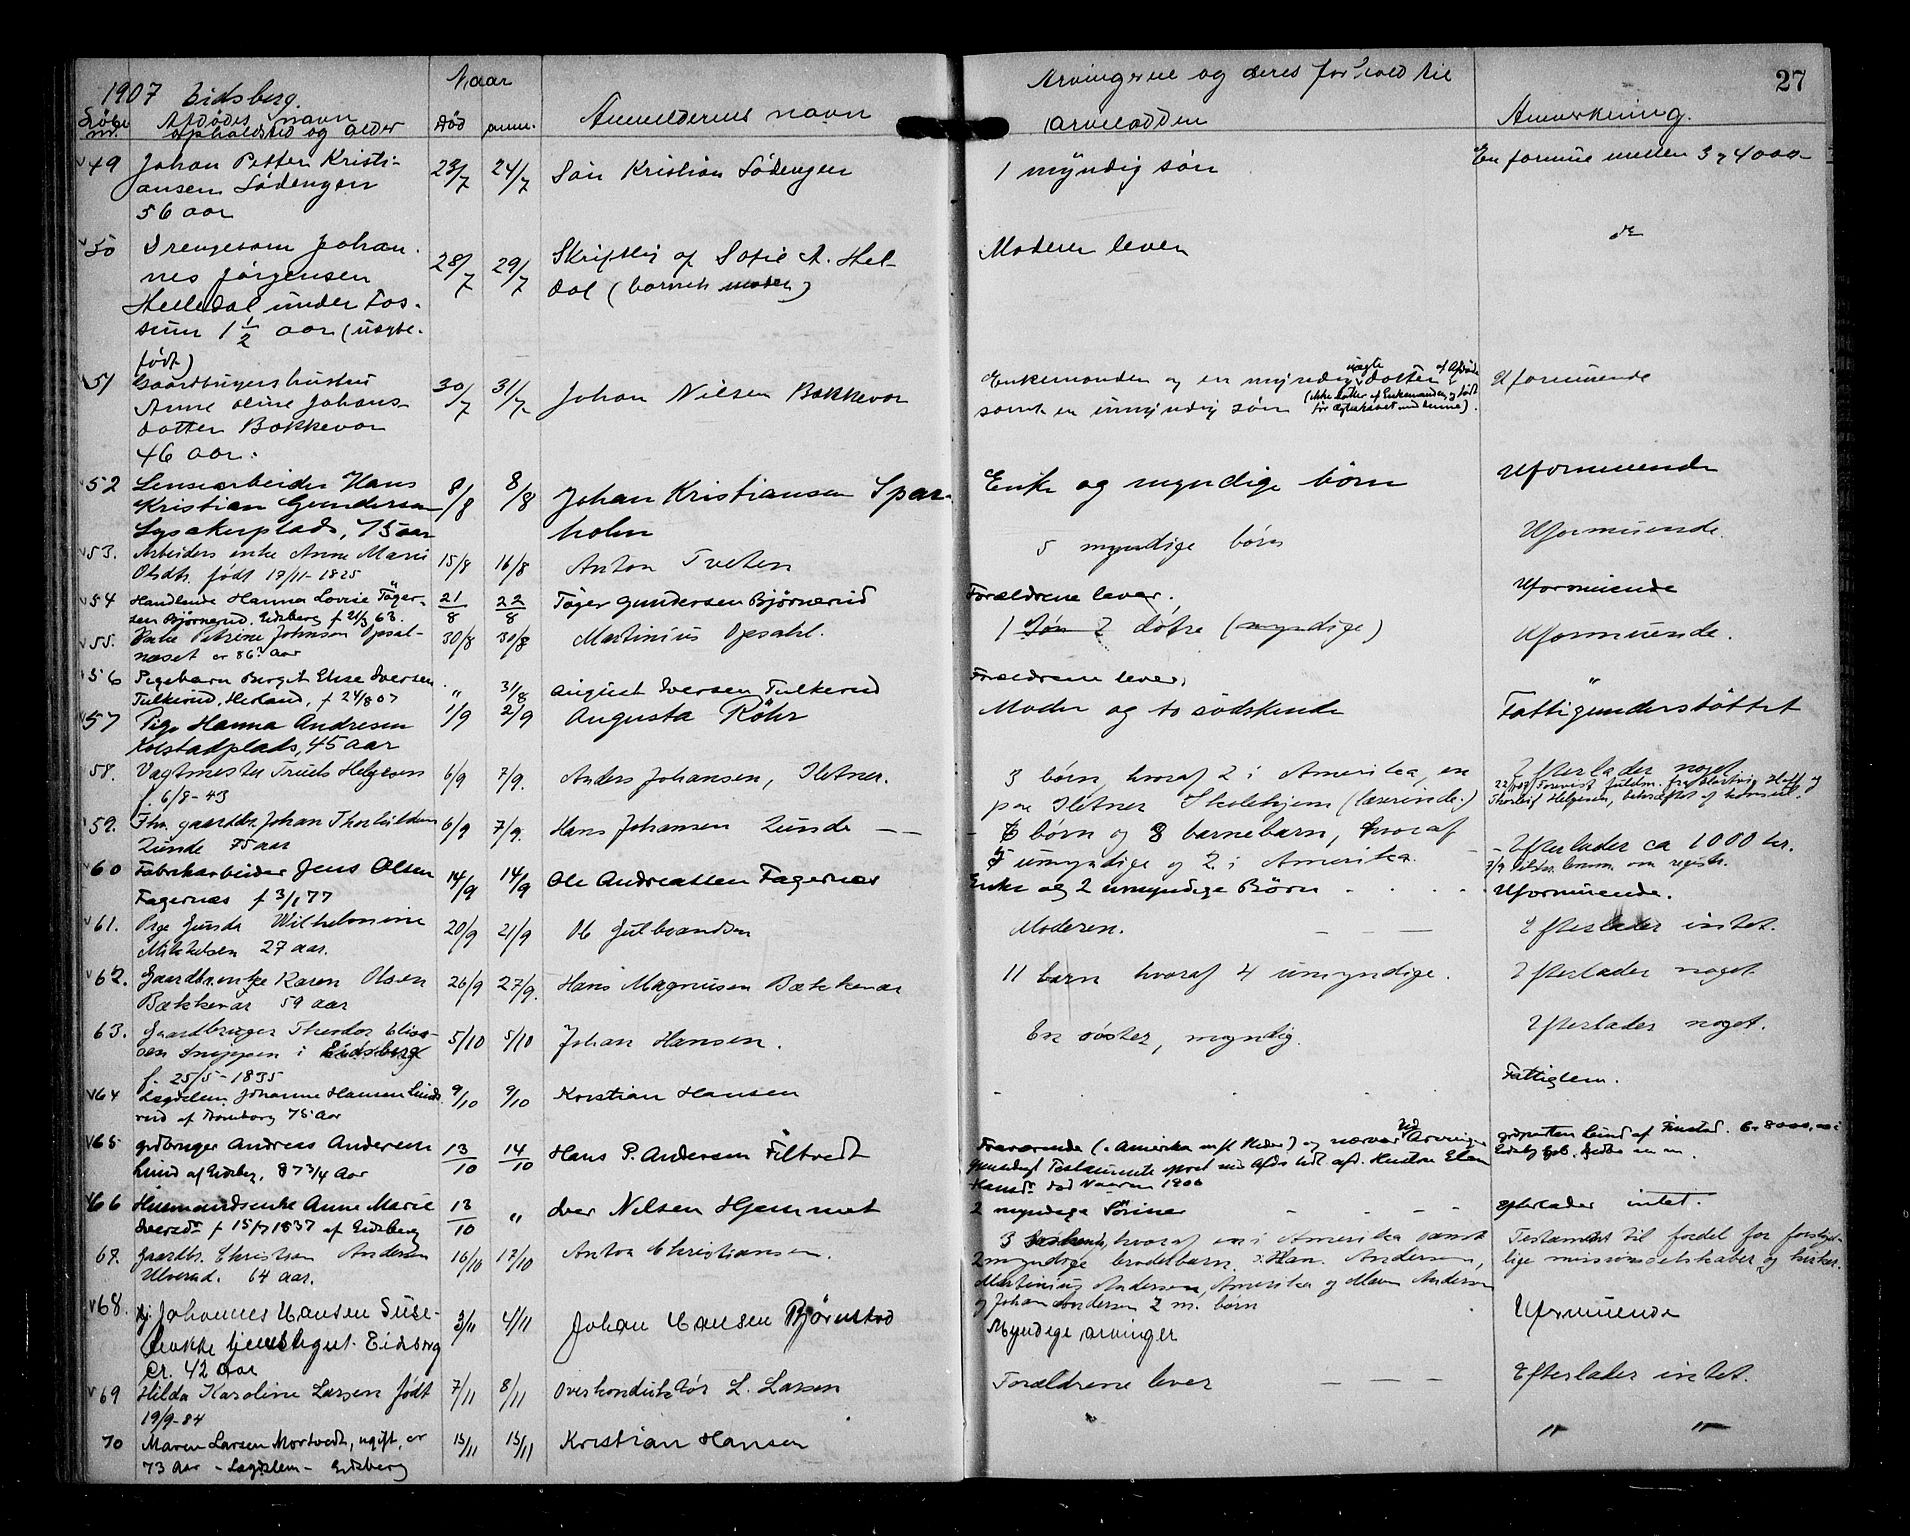 1907 Eidsberg.
Naar
Arvingerne og deres forhold til
27
Löbe
nr.
Afdödes navn
opholdsted og alder
död
anm.
Anmelderens navn
arveladeren
Anmerkning.
49 Johan Petter Kristi-
ansen Södengen
56 aar
23/7 24/7 Sön Kristian Södengen
1 myndig sön
En formue mellem 3 og 4000
50 Drengebarn Johan-
nes Jörgensen
Helledal under Fos-
sum 1 1/2 aar (uægte-
födt)
28/7 29/7 Skriftlig af Sofie A. Hel-
dal (barnets moder)
Moderen lever
51 Gaardbrugerhustru
Anne Oline Johans-
datter Bakkevar
46 aar.
30/7 31/7 Johan Nilsen Bakkevar
Enkemanden og en myndig uægte datter af Afdöde
samt en umyndig sön (ikke datter af Enkemanden, og födt
før Ægteskabet med denne).
Uformuende
52 Lensearbeider Hans
Kristian Gundersen
Lysakerplads, 75 aar
8/8 8/8 Johan Kristiansen Spar-
holm
Enke og myndige börn
Uformuende
53. Arbeiders enke Anne Marie
Olsdtr. født 17/11-1825
15/8 16/8 Anton Tveten
5 myndige börn
Uformuende.
54 Handlende Hanna Lovise Töger-
sen Björnerud, Eidsberg f 21/3 63.
21/8 22/8 Töger Gundersen Bjørnerud
Forældrene lever.
Uformuende
55. Enke Petrine Johnsen Opsal-
næset er 86? aar
30/8 30/8 Martinius Opsahl.
1 Søn 2 døtre (myndige)
Uformuende.
56 Pigebarn Birgit Elise Iversen
Tulkerud, Herland, f 24/8 07
" 31/8 August Iversen Tulkerud
Forældrene lever.
"
57 Pige Hanna Andresen
Kolstadplads, 45 aar
1/9 2/9 Augusta Röhr
Moder og to södskende
Fattigunderstöttet
58. Vagtmester Truels Helgesen
f. 6/8-43
6/9 7/9. Anders Johansen, Sletner.
3 børn, hvoraf 2 i Amerika, en
paa Sletner Skolehjem (lærerinde.)
Efterlader noget
Thorleif Helgesen, bekræftet af konsul.
59. Fhv. gaardbr. Johan Thorkildsen
Lunde 75 aar
6/9 7/9. Hans Johansen Lunde
6 børn og 8 barnebarn, hvoraf
5 umyndige og 2 i Amerika.
Efterlader ca 1000 kr.
60 Fabrikarbeider Jens Olsen
Fagernæs f 3/1 77
14/9 14/9 Ole Andreassen Fagernæs
Enke og 2 umyndige Börn
Uformuende.
61. Pige Gunda Wilhelmine
Mikkelsen 27 aar.
20/9 21/9 Ole Gulbrandsen
Moderen.
Efterlader intet.
62. Gaardbr.enke Karen Olsen
Bækkevar 59 aar
26/9 27/9. Hans Magnusen Bækkevar
11 barn hvoraf 4 umyndige.
Efterlader noget
63. Gaardbruger Theodor Elias-
sen Snippen i Eidsberg
f. 25/5-1835
5/10 5/10 Johan Hansen.
En søster, myndig.
Efterlader noget.
64 Lægdslem Johanne Hansen Lunde-
rud af Trømborg 75 Aar
9/10 9/10 Kristian Hansen
Fattiglem.
65 Grdbruger Andreas Andersen
Lund af Eidsberg, 87 3/4 Aar
13/10 14/10 Hans P. Andersen Filtvedt
Fraværende (i Amerika og fl. Steder) og nærværende Arvinger
gjensidigt Testamente opret med Afdødes tidl. afd. Hustru Elen
Hansdr. død Vaaren 1906
66 Husmandsenke Anne Marie
Iversdr f 15/7 1837 af Eidsberg
13/10 " Iver Nilsen Hjemmet
2 myndige Sönner
Efterlader intet.
67. Gaardbr. Christian Andersen
Ulverud. 64 aar.
16/10 17/10 Anton Christiansen.
3 søskende, hvoraf en i Amerika samt
2 myndige broderbarn. Han. Andersen,
Martinius Andersen, Amerika og Maren Andersen
og Johan Andersen 2 m. børn
Testamentet til fordel for forskjel-
lige missionsselskaber og kirker.
68. Johannes Hansen Suse-
bakke tjenstegut. Eidsberg
Cr. 42 aar
3/11 4/11 Johan Hansen Björnstad
Myndige arvinger
Uformuende
69 Hilda Karoline Larsen født
19/9-84
7/11 8/11 Overkonduktør L. Larsen
Forældrene lever
Efterlader intet.
70 Maren Larsen Mortvedt, ugift, er
73 Aar - Lægdslem - Eidsberg
15/11 15/11 Kristian Hansen
" "